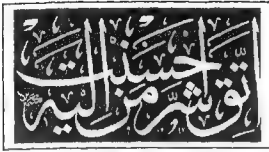 اتق شر من أحسنت إليه